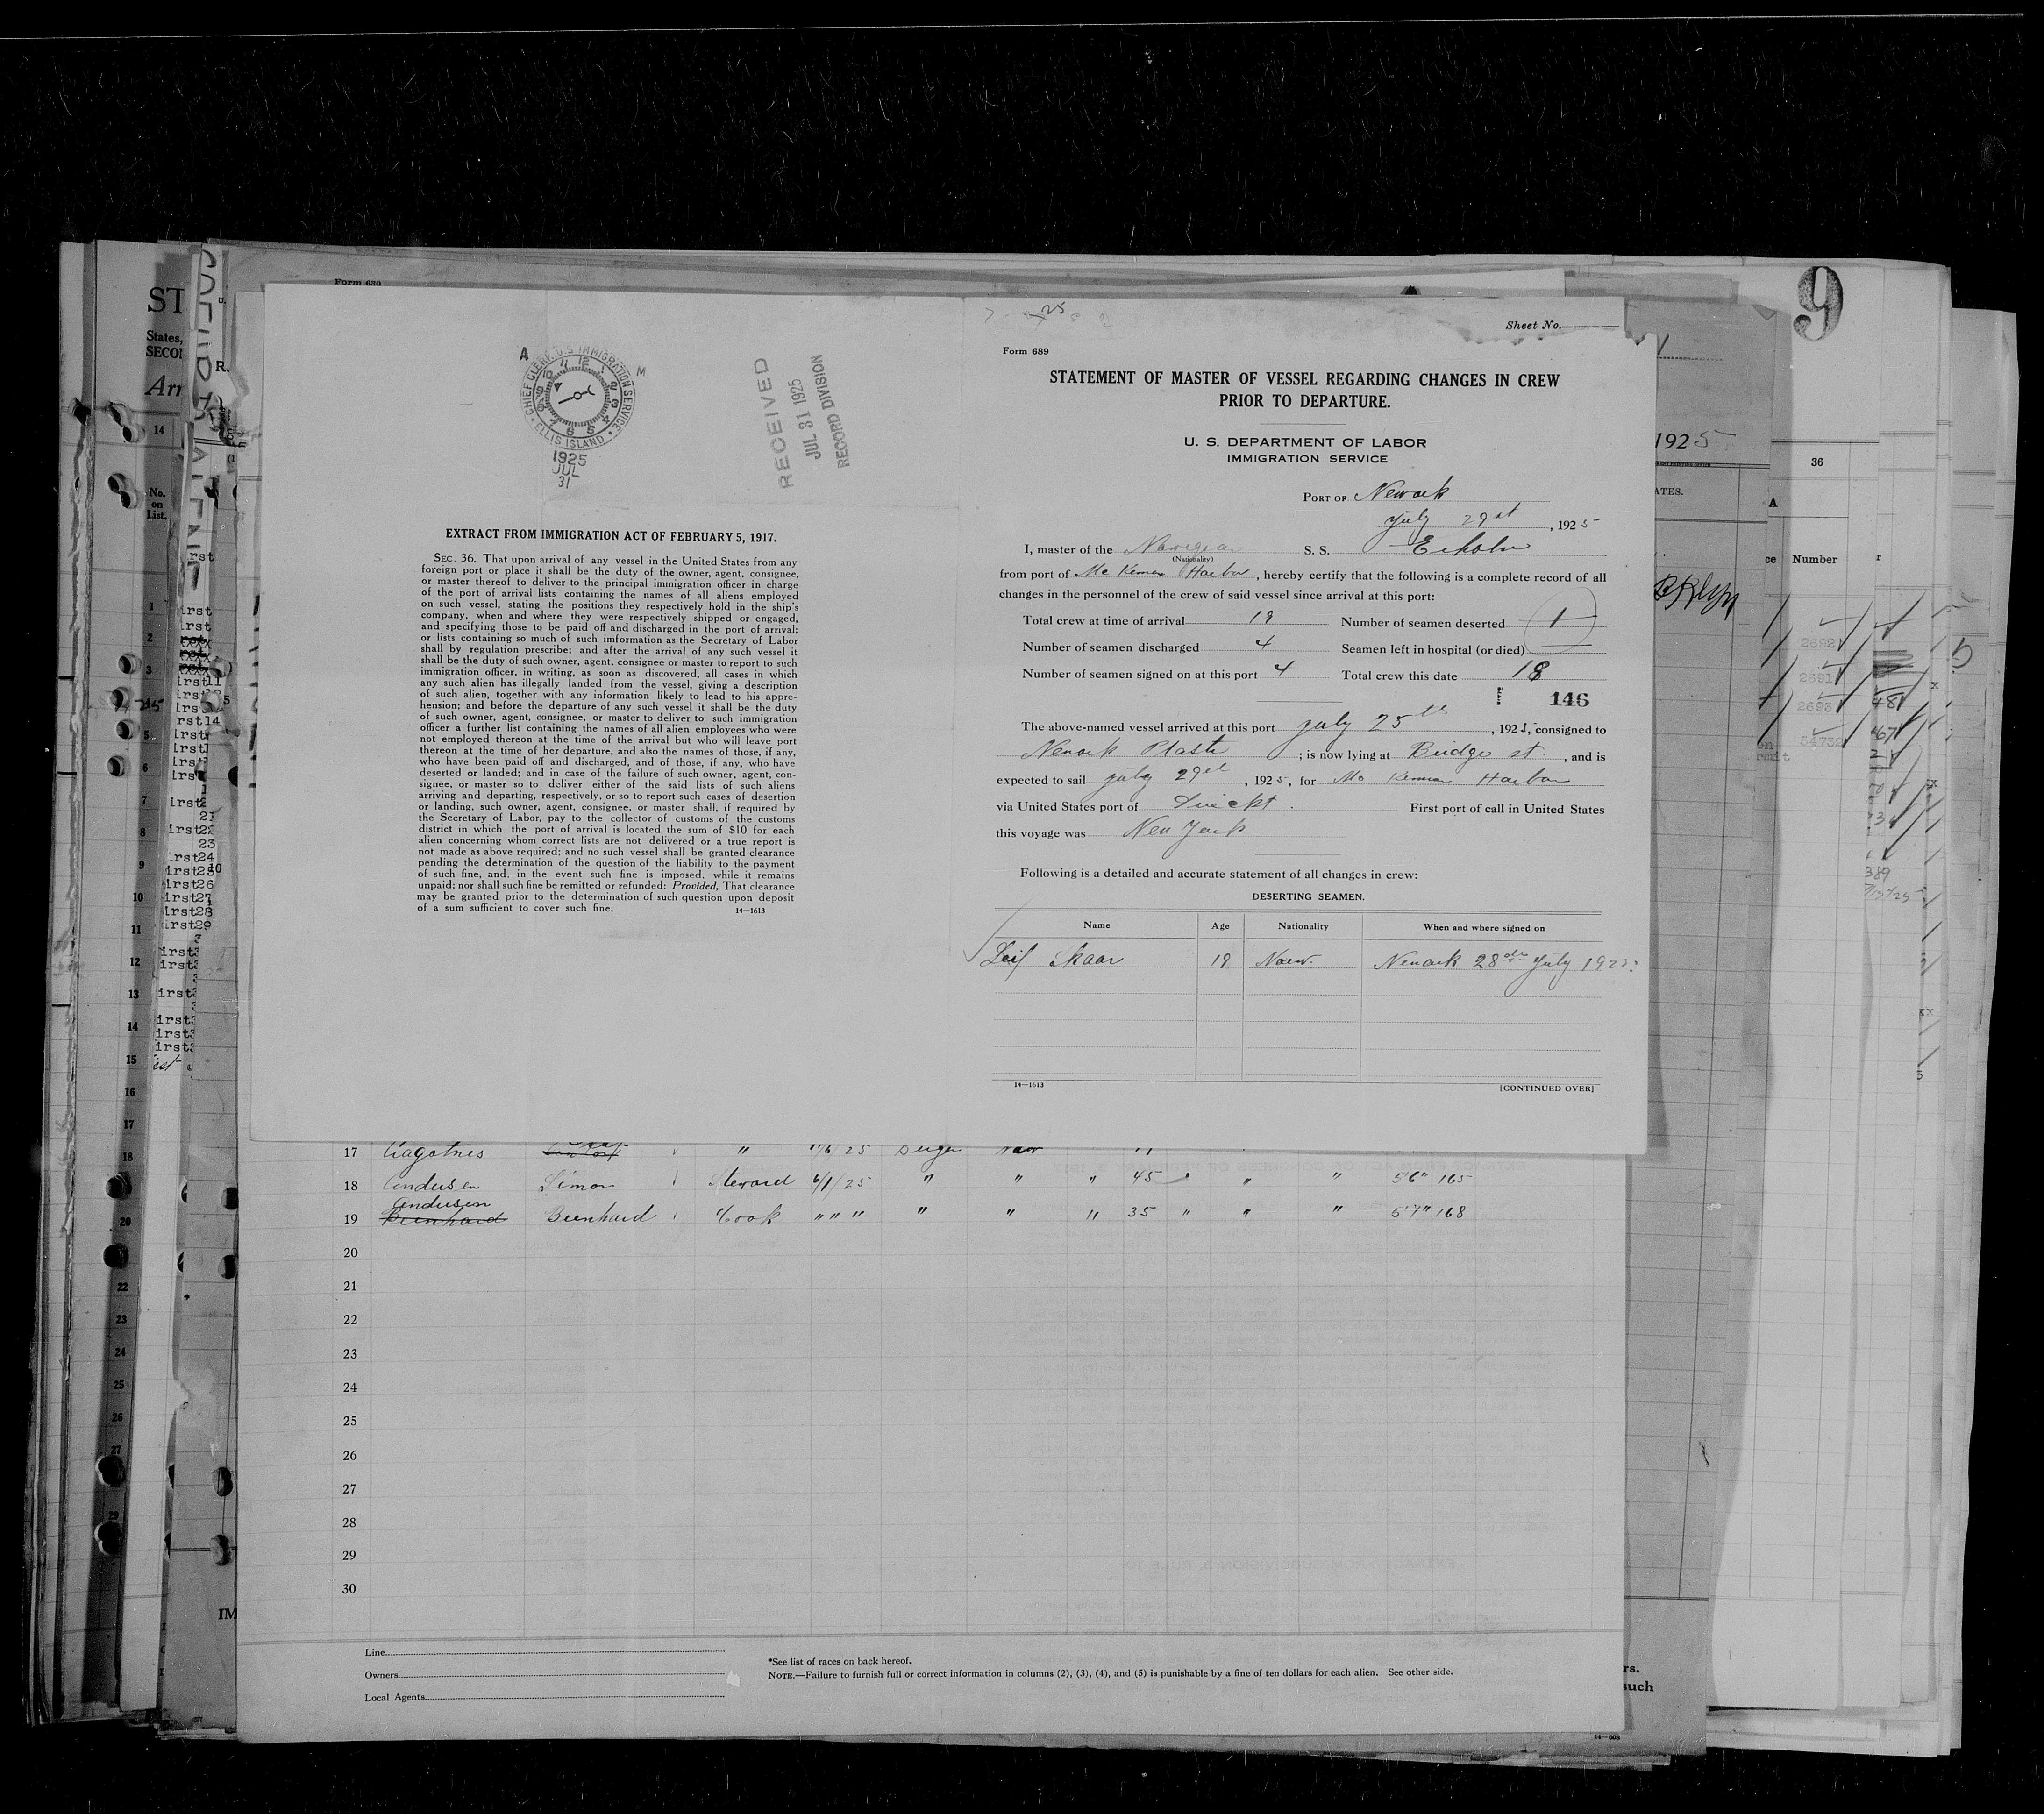 Form 630
A
M
CHIEF CLERK U.S IMMIGRATION SERVICE
ELLIS ISLAND
1925
JUL
31
RECEIVED
JUL 31 1925
RECORD DIVISION
EXTRACT FROM IMMIGRATION ACT OF FEBRUARY 5, 1917.
SEC. 36. That upon arrival of any vessel in the United States from any
foreign port or place it shall be the duty of the owner, agent, consignee,
or master thereof to deliver to the principal immigration officer in charge
of the port of arrival lists containing the names of all aliens employed
on such vessel, stating the positions they respectively hold in the ship's
company, when and where they were respectively shipped or engaged,
and specifying those to be paid off and discharged in the port of arrival;
or lists containing so much of such imformation as the Secretary of Labor
shall by regulation prescribe; and after the arrival of any such vessel it
shall be the duty of such owner, agent, consignee or master to report to such
immigration officer, in writing, as soon as discovered, all cases in which
any such alien has illegally landed from the vessel, giving a description
of such alien, together with any information likely to lead to his appre-
hension; and before the departure of any such vessel it shall be the duty
of such owner, agent, consignee, or master to deliver to such immigration
officer a further list containing the names of all alien employees who were
not employed thereon at the time of the arrival but who will leave port
thereon at the time of her departure, and also the names of those, if any,
who have been paid off and discharged, and of those, if any, who have
deserted or landed; and in case of the failure of such owner, agent, con-
signee, or master so to deliver either of the said lists of such aliens
arriving and departing, respectively, or so to report such cases of desertion
or landing, such owner, agent, consignee, or master shall, if required by
the Secretary of Labor, pay to the collector of customs of the customs
district in which the port of arrival is located the sum of $10 for each
alien concerning whom correct lists are not delivered or a true report is
not made as above required; and no such vessel shall be granted clearance
pending the determination of the question of the liability to the payment
of such fine, and, in the event such fine is imposed, while it remains
unpaid; nor shall such fine be remitted or refunded: Provided, That clearance
may be granted prior to the determination of such question upon deposit
of a sum sufficient to cover such fine.
14—1613
Sheet No.
Form 689
STATEMENT OF MASTER OF VESSEL REGARDING CHANGES IN CREW
PRIOR TO DEPARTURE.
U. S. DEPARTMENT OF LABOR
IMMIGRATION SERVICE
PORT OF Newark
July 29st, 1925
I, master of the S. S.
(Nationality)
from port of Harbor, hereby certify that the following is a complete record of all
changes in the personnel of the crew of said vessel since arrival at this port:
Total crew at time of arrival 19 Number of seamen deserted 1
Number of seamen discharged 4 Seamen left in hospital (or died) —
Number of seamen signed on at this port 4 Total crew this date 18
146
The above-named vessel arrived at this port July 25th, 1925, consigned to
Newark ; is now lying at Bridge st, and is
expected to sail July 29st, 1925, for Harbor
via United States port of First port of call in United States
this voyage was New York
Following is a detailed and accurate statement of all changes in crew:
DESERTING SEAMEN.
Name Age Nationality When and where signed on
Leif Skaar 19 Norw. Newark 28 July 1925
14—1613 [CONTINUED OVER]
17 " Bergen Norw
18 Andersen Simon Steward 6/1/25 " " " 45 " " 5'6" 165
19 Andersen Bernhard Cook " " " " " " 35 " " " 5'7" 168
20
21
22
23
24
25
26
27
28
29
30
Line
Owners
Local Agents
*See list of races on back hereof.
NOTE.—Failure to furnish full or correct information in columns (2), (3), (4), and (5) is punishable by a fine of ten dollars for each alien. See other side.
14—608
9
1925
36
A
Number
2692
2691
2693
54732
389
ST
States,
SECO
Arr
14
No.
on
List.
1
2
3
5
6
7
8
9
10
11
12
13
14
15
16
17
18
20
22
23
24
25
26
27
29
such